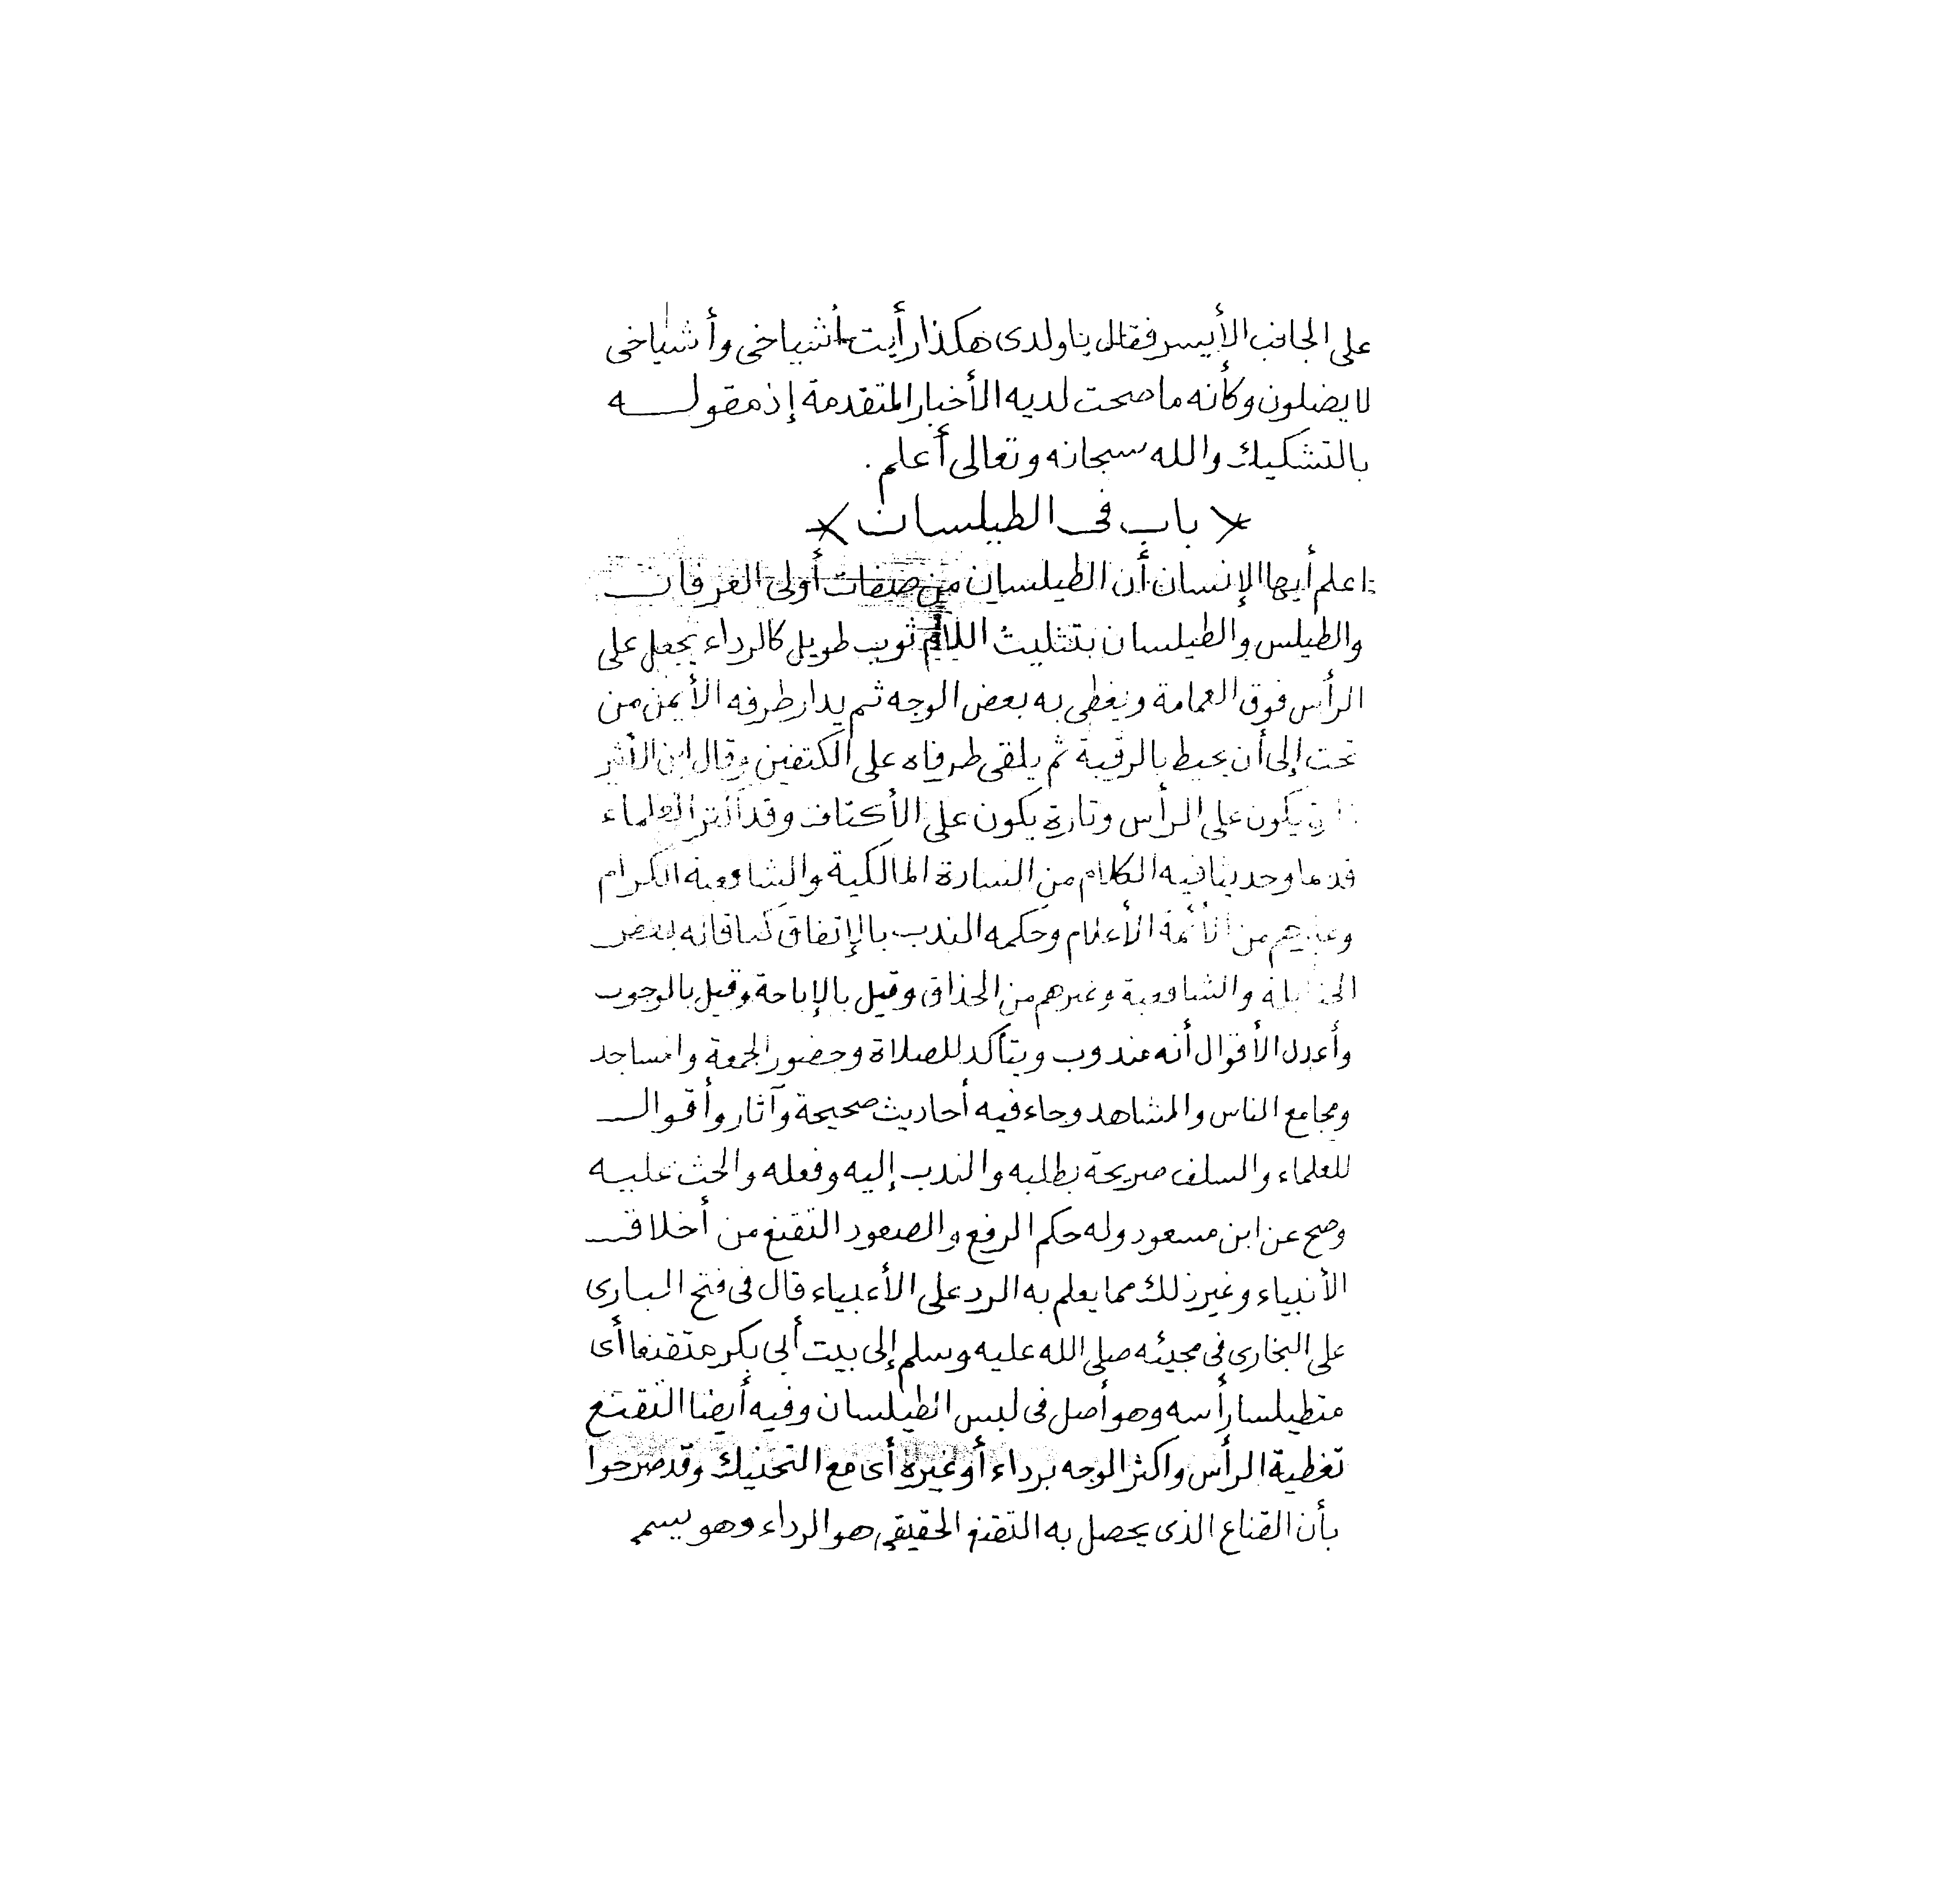 على الجانب الأيسر فقال يا ولدى هكذا رأيت أشياخى وأشياخى
لا يضلون وكأنه ما صحت لديه الأخبار المتقدمة إذ مقوله
بالتشكيك والله سبحانه وتعالى أعلم .
* باب فى الطيلسان *
اعلم أيها الإنسان أن الطيلسان من صفات أولى العرفان
والطيلس والطيلسان بتثليث اللام ثوب طويل كالرداء يجعل على
الرأس فوق العمامة ويغطى به بعض الوجه ثم يدار طرفه الأيمن من
تحت إلى أن يحيط بالرقبة ثم يلقى طرفاه على الكتفين وقال ابن الأثير
تارة يكون على الرأس وتارة يكون على الأكتاف وقد أكثر العلماء
قديما وحديثا فيه الكلام من السادة المالكية والشافعية الكرام
وغيرهم من الأئمة الأعلام وحكمه الندب بالإتفاق كما قاله بعض
الحنابلة والشافعية وغيرهم من الحذاق وقيل بالإباحة وقيل بالوجوب
وأعدل الأقوال أنه مندوب ويتأكد للصلاة وحضور الجمعة والمساجد
ومجامع الناس والمشاهد وجاء فيه أحاديث صحيحة وآثار وأقوال
للعلماء والسلف صريحة بطلبه والندب إليه وفعله والحث عليه
وصح عن ابن مسعود وله حكم الرفع والصعود التقنع من أخلاق
الأنبياء وغير ذلك مما يعلم به الرد على الأغبياء قال فى فتح البارى
على البخارى فى مجيئه صلى الله عليه وسلم إلى بيت أبى بكر متقنعا أى
متطيلسا رأسه وهو أصل فى لبس الطيلسان وفيه أيضا التقنع
تغطية الرأس واكثر الوجه برداء أو غيره أى مع التحنيك وقد صرحوا
بأن القناع الذى يحصل به التقنع الحقيقى هو الرداء وهو يسمى